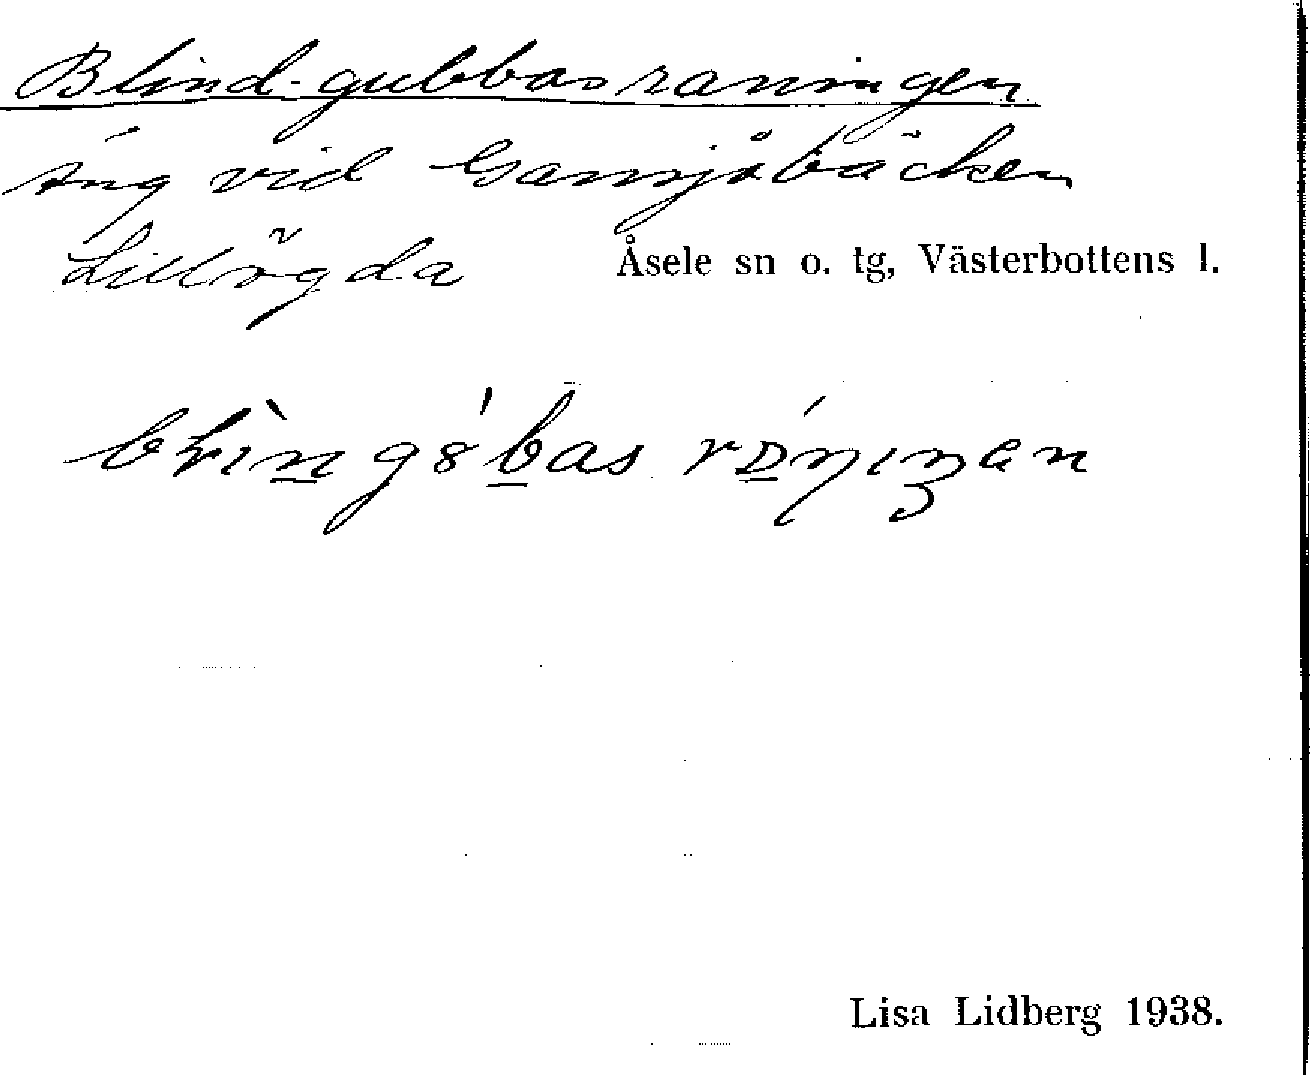 Blind-gubbasraningen
äng vid Gansjåbäcken
Lillögda Åsele sn o. tg, Västerbottens l.
Lisa Lidberg 1938.